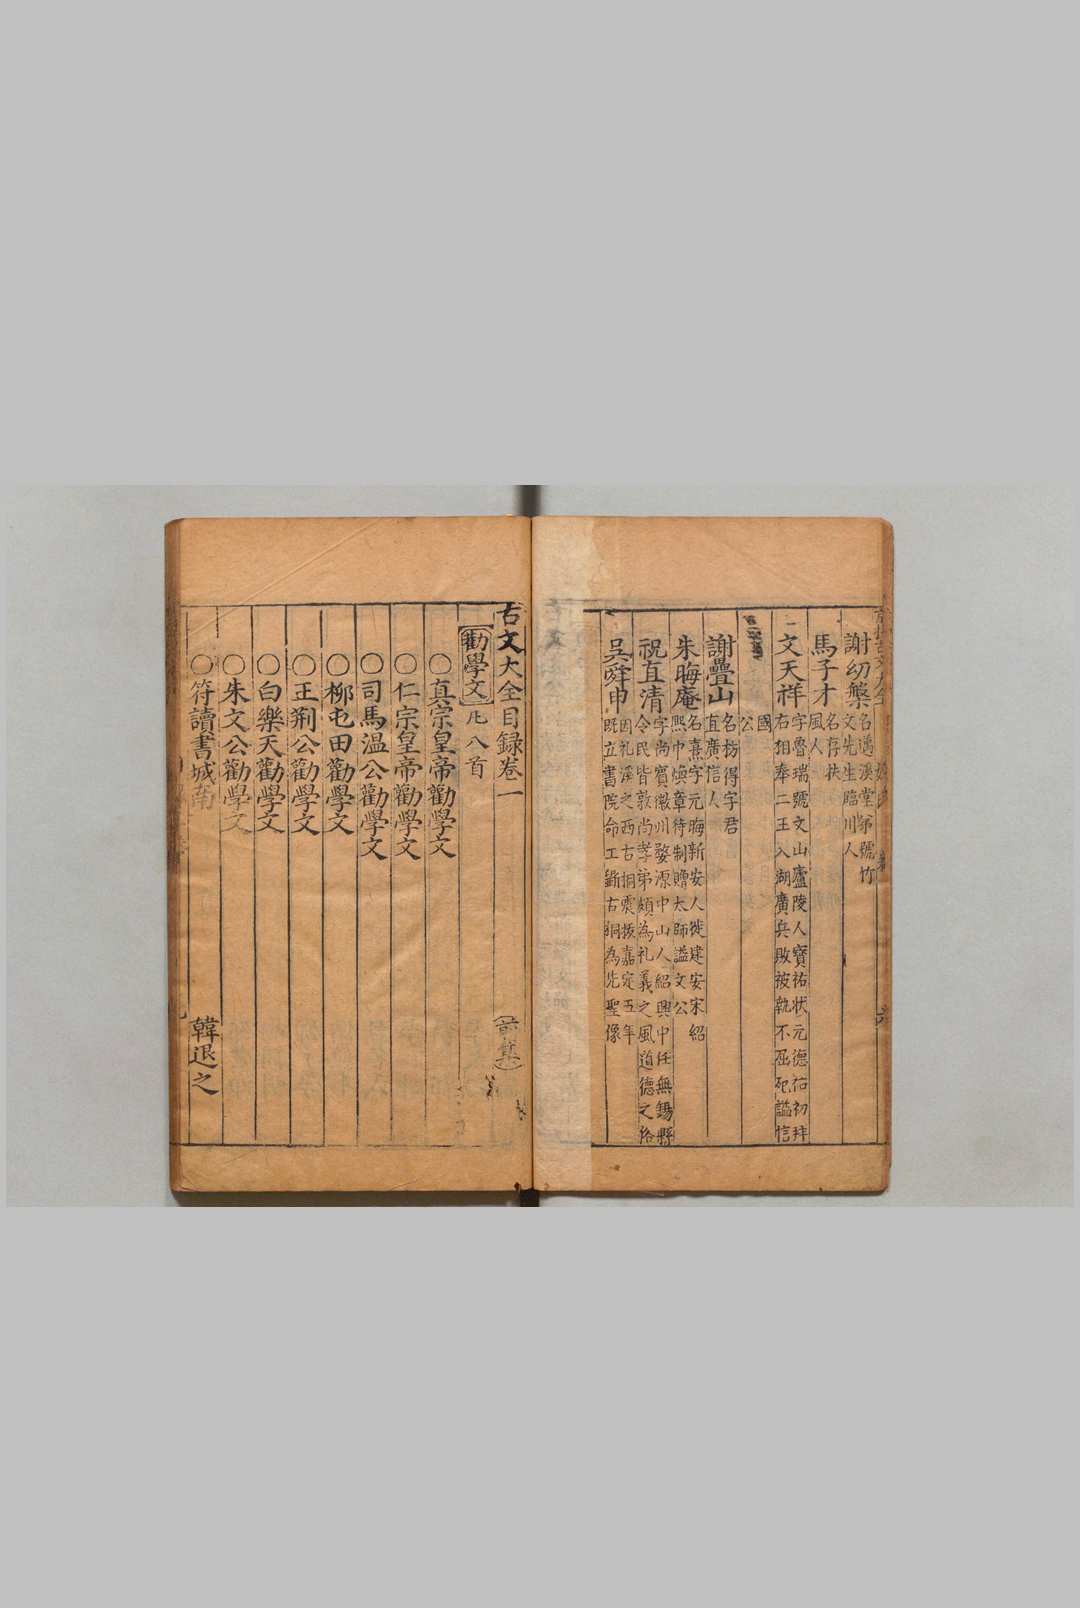 謝幼槃 名薖溪堂弟號竹
文先生臨川人
馬子才 名存扶
風人
文天祥 字魯瑞號文山廬陵人寶祐狀元德祐初拜
右相奉二王入湖廣兵敗被執不屈死諡信
國
公
謝疊山 名枋得字君
直廣信人
朱晦庵 名熹字元晦新安人徙建安宋紹
熙中煥章待制贈太師諡文公
祝直清 字尚賓徽州婺源中山人紹興中任無錫縣
令民皆敦尚孝弟頗為礼義之風道德之俗
吳舜申 因礼溪之西古桐震拔嘉定五年
既立書院命工鋸古桐為先聖像
古文大全目録卷一 前集
勸學文 凡八首
○真宗皇帝勸學文
○仁宗皇帝勸學文
○司馬溫公勸學文
○柳屯田勸學文
○王荆公勸學文
○白樂天勸學文
○朱文公勸學文
○符讀書城南 韓退之